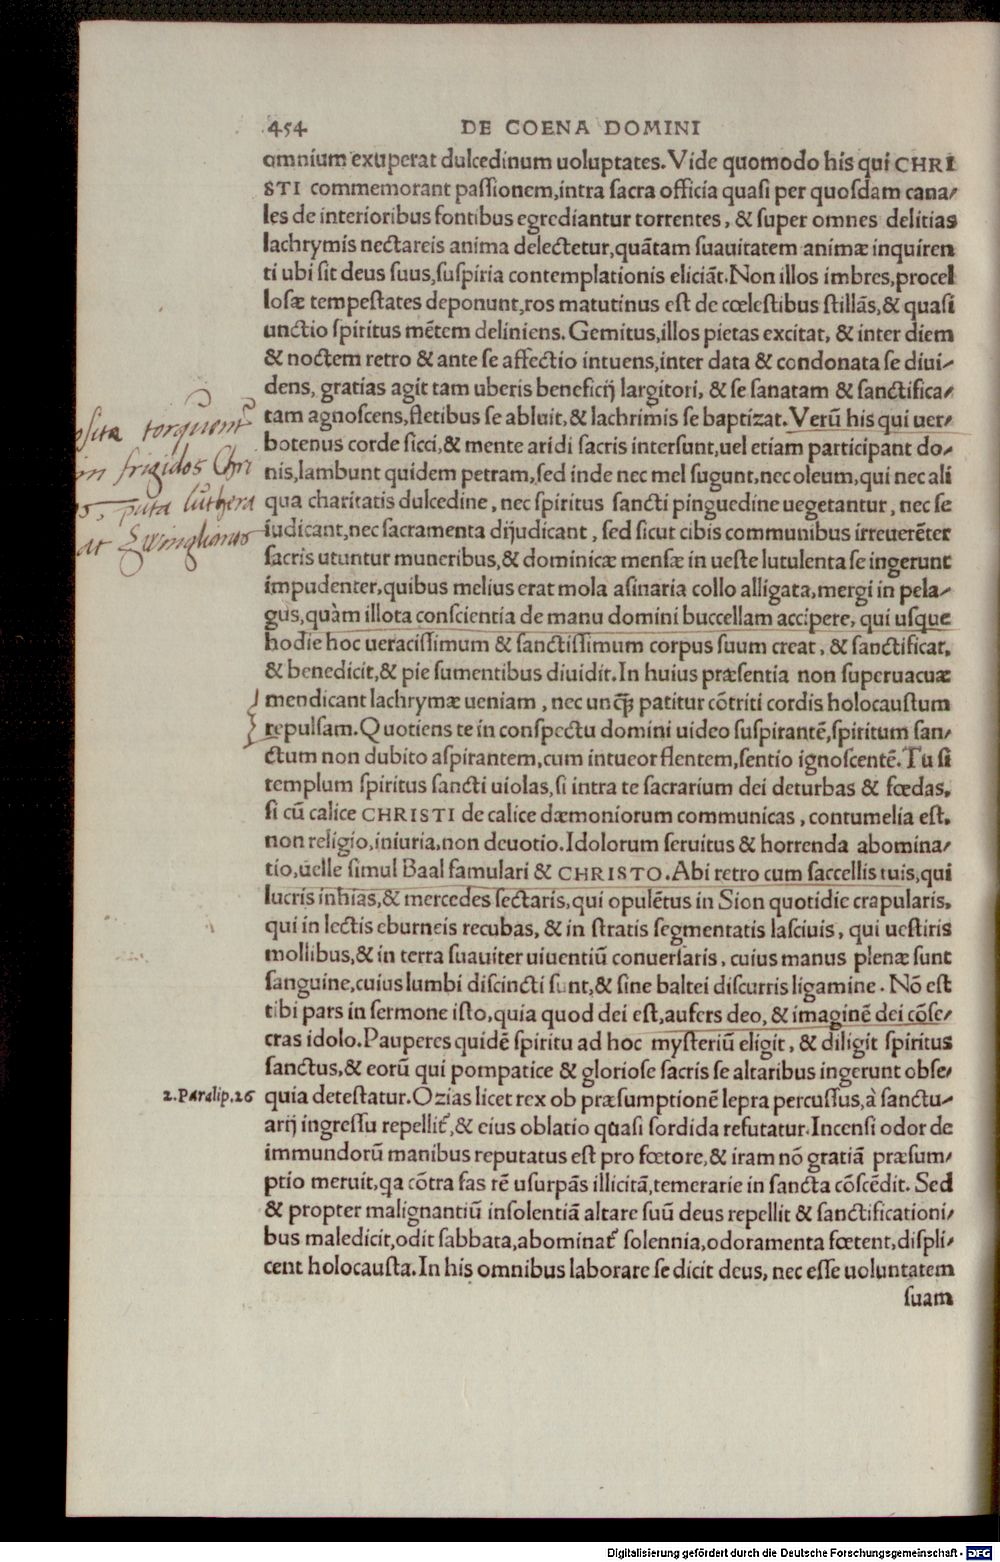 454 DE COENA DOMINI
omnium exuperat dulcedinum uoluptates. Vide quomodo his qui CHRI
STI commemorant paſſionem, intra ſacra officia quaſi per quoſdam cana/
les de interioribus fontibus egrediantur torrentes, & ſuper omnes delitias
lachrymis nectareis anima delectetur, quãtam ſuauitatem animæ inquiren
ti ubi ſit deus ſuus, ſuſpiria contemplationis eliciãt. Non illos imbres, procel
loſæ tempeſtates deponunt, ros matutinus eſt de cœleſtibus ſtillãs, & quaſi
unctio ſpiritus mẽtem deliniens. Gemitus, illos pietas excitat, & inter diem
& noctem retro & ante ſe affectio intuens, inter data & condonata ſe diui/
dens, gratias agit tam uberis beneficij largitori, & ſe ſanatam & ſanctifica/
tam agnoſcens, fletibus ſe abluit, & lachrimis ſe baptizat. Verũ his qui uer/
torquent
botenus corde ſicci, & mente aridi ſacris interſunt, uel etiam participant do/
in frigidos Chri
nis, lambunt quidem petram, ſed inde nec mel ſugunt, nec oleum, qui nec ali
puta luthera
qua charitatis dulcedine, nec ſpiritus ſancti pinguedine uegetantur, nec ſe
Zwinglianos
iudicant, nec ſacramenta dijudicant, ſed ſicut cibis communibus irreuerẽter
ſacris utuntur muneribus, & dominicæ menſæ in ueſte lutulenta ſe ingerunt
impudenter, quibus melius erat mola aſinaria collo alligata, mergi in pela/
gus, quàm illota conſcientia de manu domini buccellam accipere, qui uſque
hodie hoc ueraciſſimum & ſanctiſſimum corpus ſuum creat, & ſanctificat,
& benedicit, & pie ſumentibus diuidit. In huius præſentia non ſuperuacuæ
mendicant lachrymæ ueniam, nec unq̃ꝫ patitur cõtriti cordis holocauſtum
repulſam. Quotiens te in conſpectu domini uideo ſuſpirantẽ, ſpiritum ſan/
ctum non dubito aſpirantem, cum intueor flentem, ſentio ignoſcentẽ. Tu ſi
templum ſpiritus ſancti uiolas, ſi intra te ſacrarium dei deturbas & fœdas,
ſi cũ calice CHRISTI de calice dæmoniorum communicas, contumelia eſt,
non religio, iniuria, non deuotio. Idolorum ſeruitus & horrenda abomina/
tio, uelle ſimul Baal famulari & CHRISTO. Abi retro cum ſaccellis tuis, qui
lucris inhias, & mercedes ſectaris, qui opulẽtus in Sion quotidie crapularis,
qui in lectis eburneis recubas, & in ſtratis ſegmentatis laſciuis, qui ueſtiris
mollibus, & in terra ſuauiter uiuentiũ conuerſaris, cuius manus plenæ ſunt
ſanguine, cuius lumbi diſcincti ſunt, & ſine baltei diſcurris ligamine. Nõ eſt
tibi pars in ſermone iſto, quia quod dei eſt, aufers deo, & imaginẽ dei cõſe/
cras idolo. Pauperes quidẽ ſpiritu ad hoc myſteriũ eligit, & diligit ſpiritus
ſanctus, & eorũ qui pompatice & glorioſe ſacris ſe altaribus ingerunt obſe/
2. Paralip. 26
quia deteſtatur. Ozias licet rex ob præſumptionẽ lepra percuſſus, à ſanctu/
arij ingreſſu repellit᷑, & eius oblatio quaſi ſordida refutatur. Incenſi odor de
immundorũ manibus reputatus eſt pro fœtore, & iram nõ gratiã præſum/
ptio meruit, qa cõtra fas rẽ uſurpãs illicitã, temerarie in ſancta cõſcẽdit. Sed
& propter malignantiũ inſolentiã altare ſuũ deus repellit & ſanctificationi/
bus maledicit, odit ſabbata, abominat᷑ ſolennia, odoramenta fœtent, diſpli/
cent holocauſta. In his omnibus laborare ſe dicit deus, nec eſſe uoluntatem
ſuam
Digitalisierung gefördert durch die Deutsche Forschungsgemeinschaft - DFG